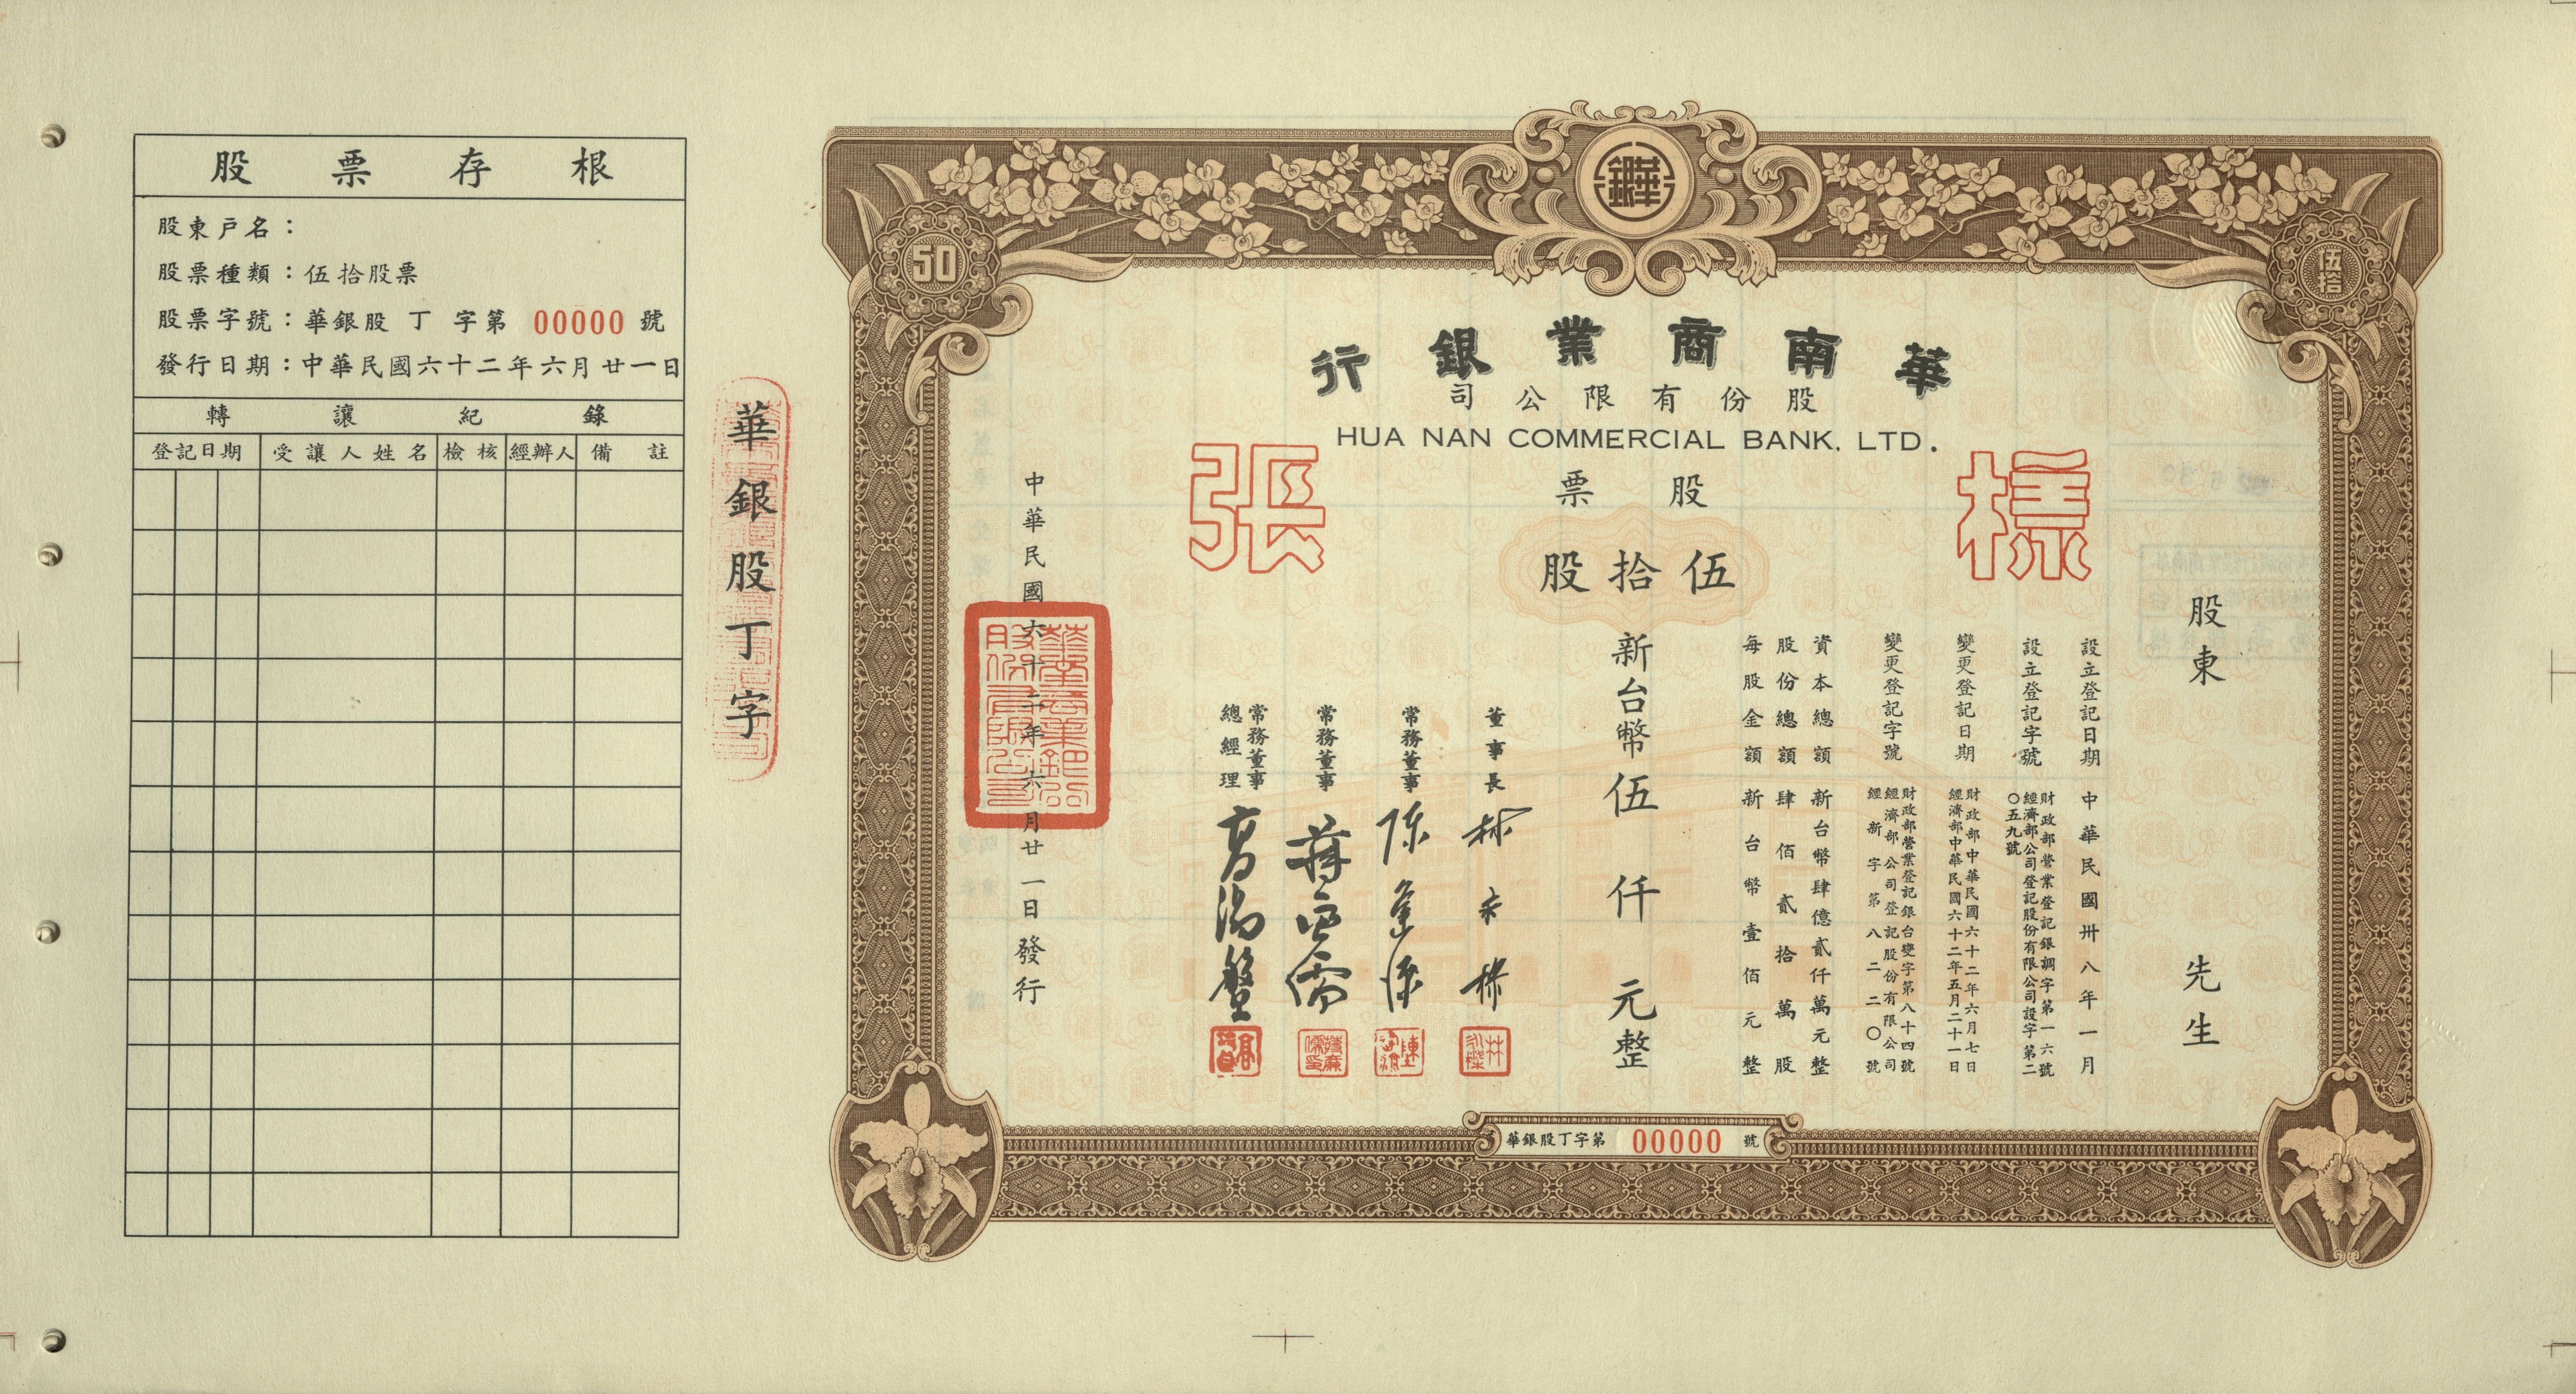 股票存根
股東戶名：
股票種類：伍拾股票
股票字號：華銀股 丁 字第 00000 號
發行日期：中華民國六十二年六月廿一日
轉讓紀錄
登記日期 受讓人姓名 檢核 經辦人 備註
華銀股丁字
50
伍拾
華南商業銀行
股份有限公司
HUA NAN COMMERCIAL BANK, LTD.
標張
股票
伍拾股
股東 先生
設立登記日期 中華民國卅八年一月
設立登記字號 財政部營業登記銀調字第一六號
經濟部公司登記股份有限公司設字第二
〇五九號
變更登記日期 財政部中華民國六十二年六月七日
經濟部中華民國六十二年五月二十一日
變更登記字號 財政部營業登記銀台變字第八十四號
經濟部公司登記股份有限公司
經新字第八二二〇號
資本總額 新台幣肆億貳仟萬元整
股份總額 肆佰貳拾萬股
每股金額 新台幣壹佰元整
新台幣伍仟元整
董事長 林永樑
常務董事
常務董事
常務董事
總經理
中華民國六十二年六月廿一日發行
華銀股丁字第 00000 號